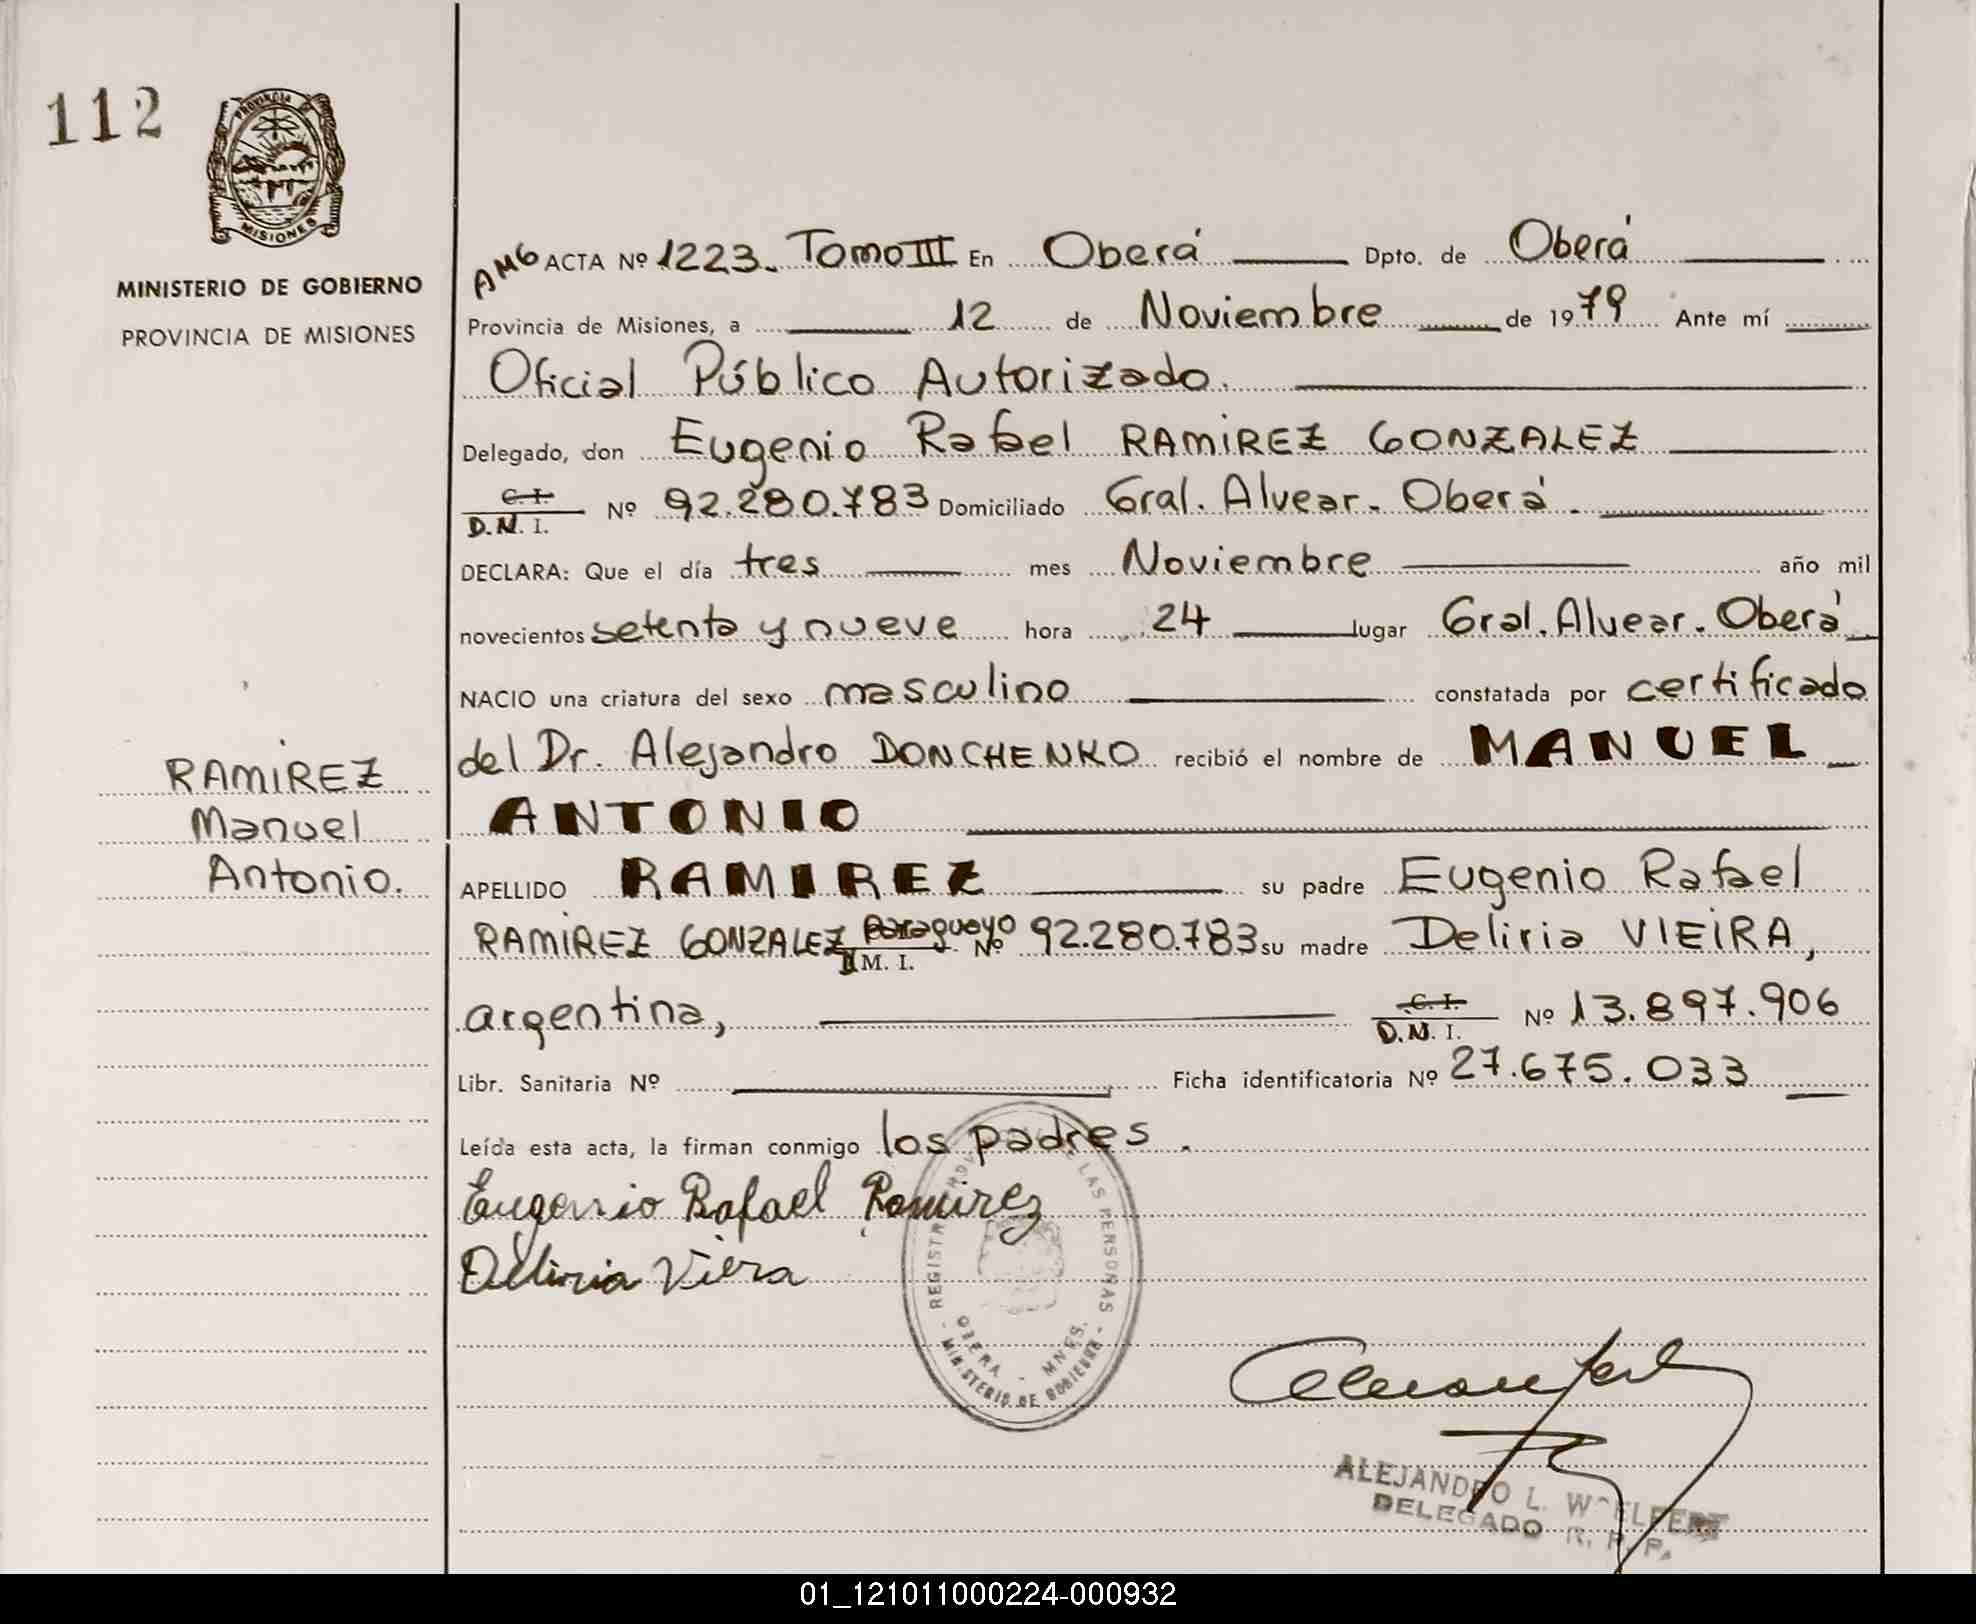 112
PROVINCIA
MISIONES
MINISTERIO DE GOBIERNO
PROVINCIA DE MISIONES
RAMIREZ
Manuel
Antonio.
AMG ACTA Nº 1223. Tomo III En Oberá Dpto. de Oberá
Provincia de Misiones, a 12 de Noviembre de 1979 Ante mí
Oficial Público Autorizado.
Delegado, don Eugenio Rafael RAMIREZ GONZALEZ
C. I.
D.N.I. Nº 92.280.783 Domiciliado Gral. Alvear. Oberá.
DECLARA: Que el día tres mes Noviembre año mil
novecientos setenta y nueve hora 24 lugar Gral. Alvear. Oberá
NACIO una criatura del sexo masculino constatada por certificado
del Dr. Alejandro DONCHENKO recibió el nombre de MANUEL
ANTONIO
APELLIDO RAMIREZ su padre Eugenio Rafael
RAMIREZ GONZALEZ paraguayo Nº 92.280.783 su madre Deliria VIEIRA,
M. I.
argentina, C. I.
D.N.I. Nº 13.897.906
Libr. Sanitaria Nº Ficha identificatoria Nº 27.675.033
Leída esta acta, la firman conmigo los padres.
Eugenio Rafael Ramirez
Deliria Viera
LAS PERSONAS
OBERA - MNES.
MINISTERIO DE GOBIERNO
ALEJANDRO L.
DELEGADO R. P. P.
01_121011000224-000932